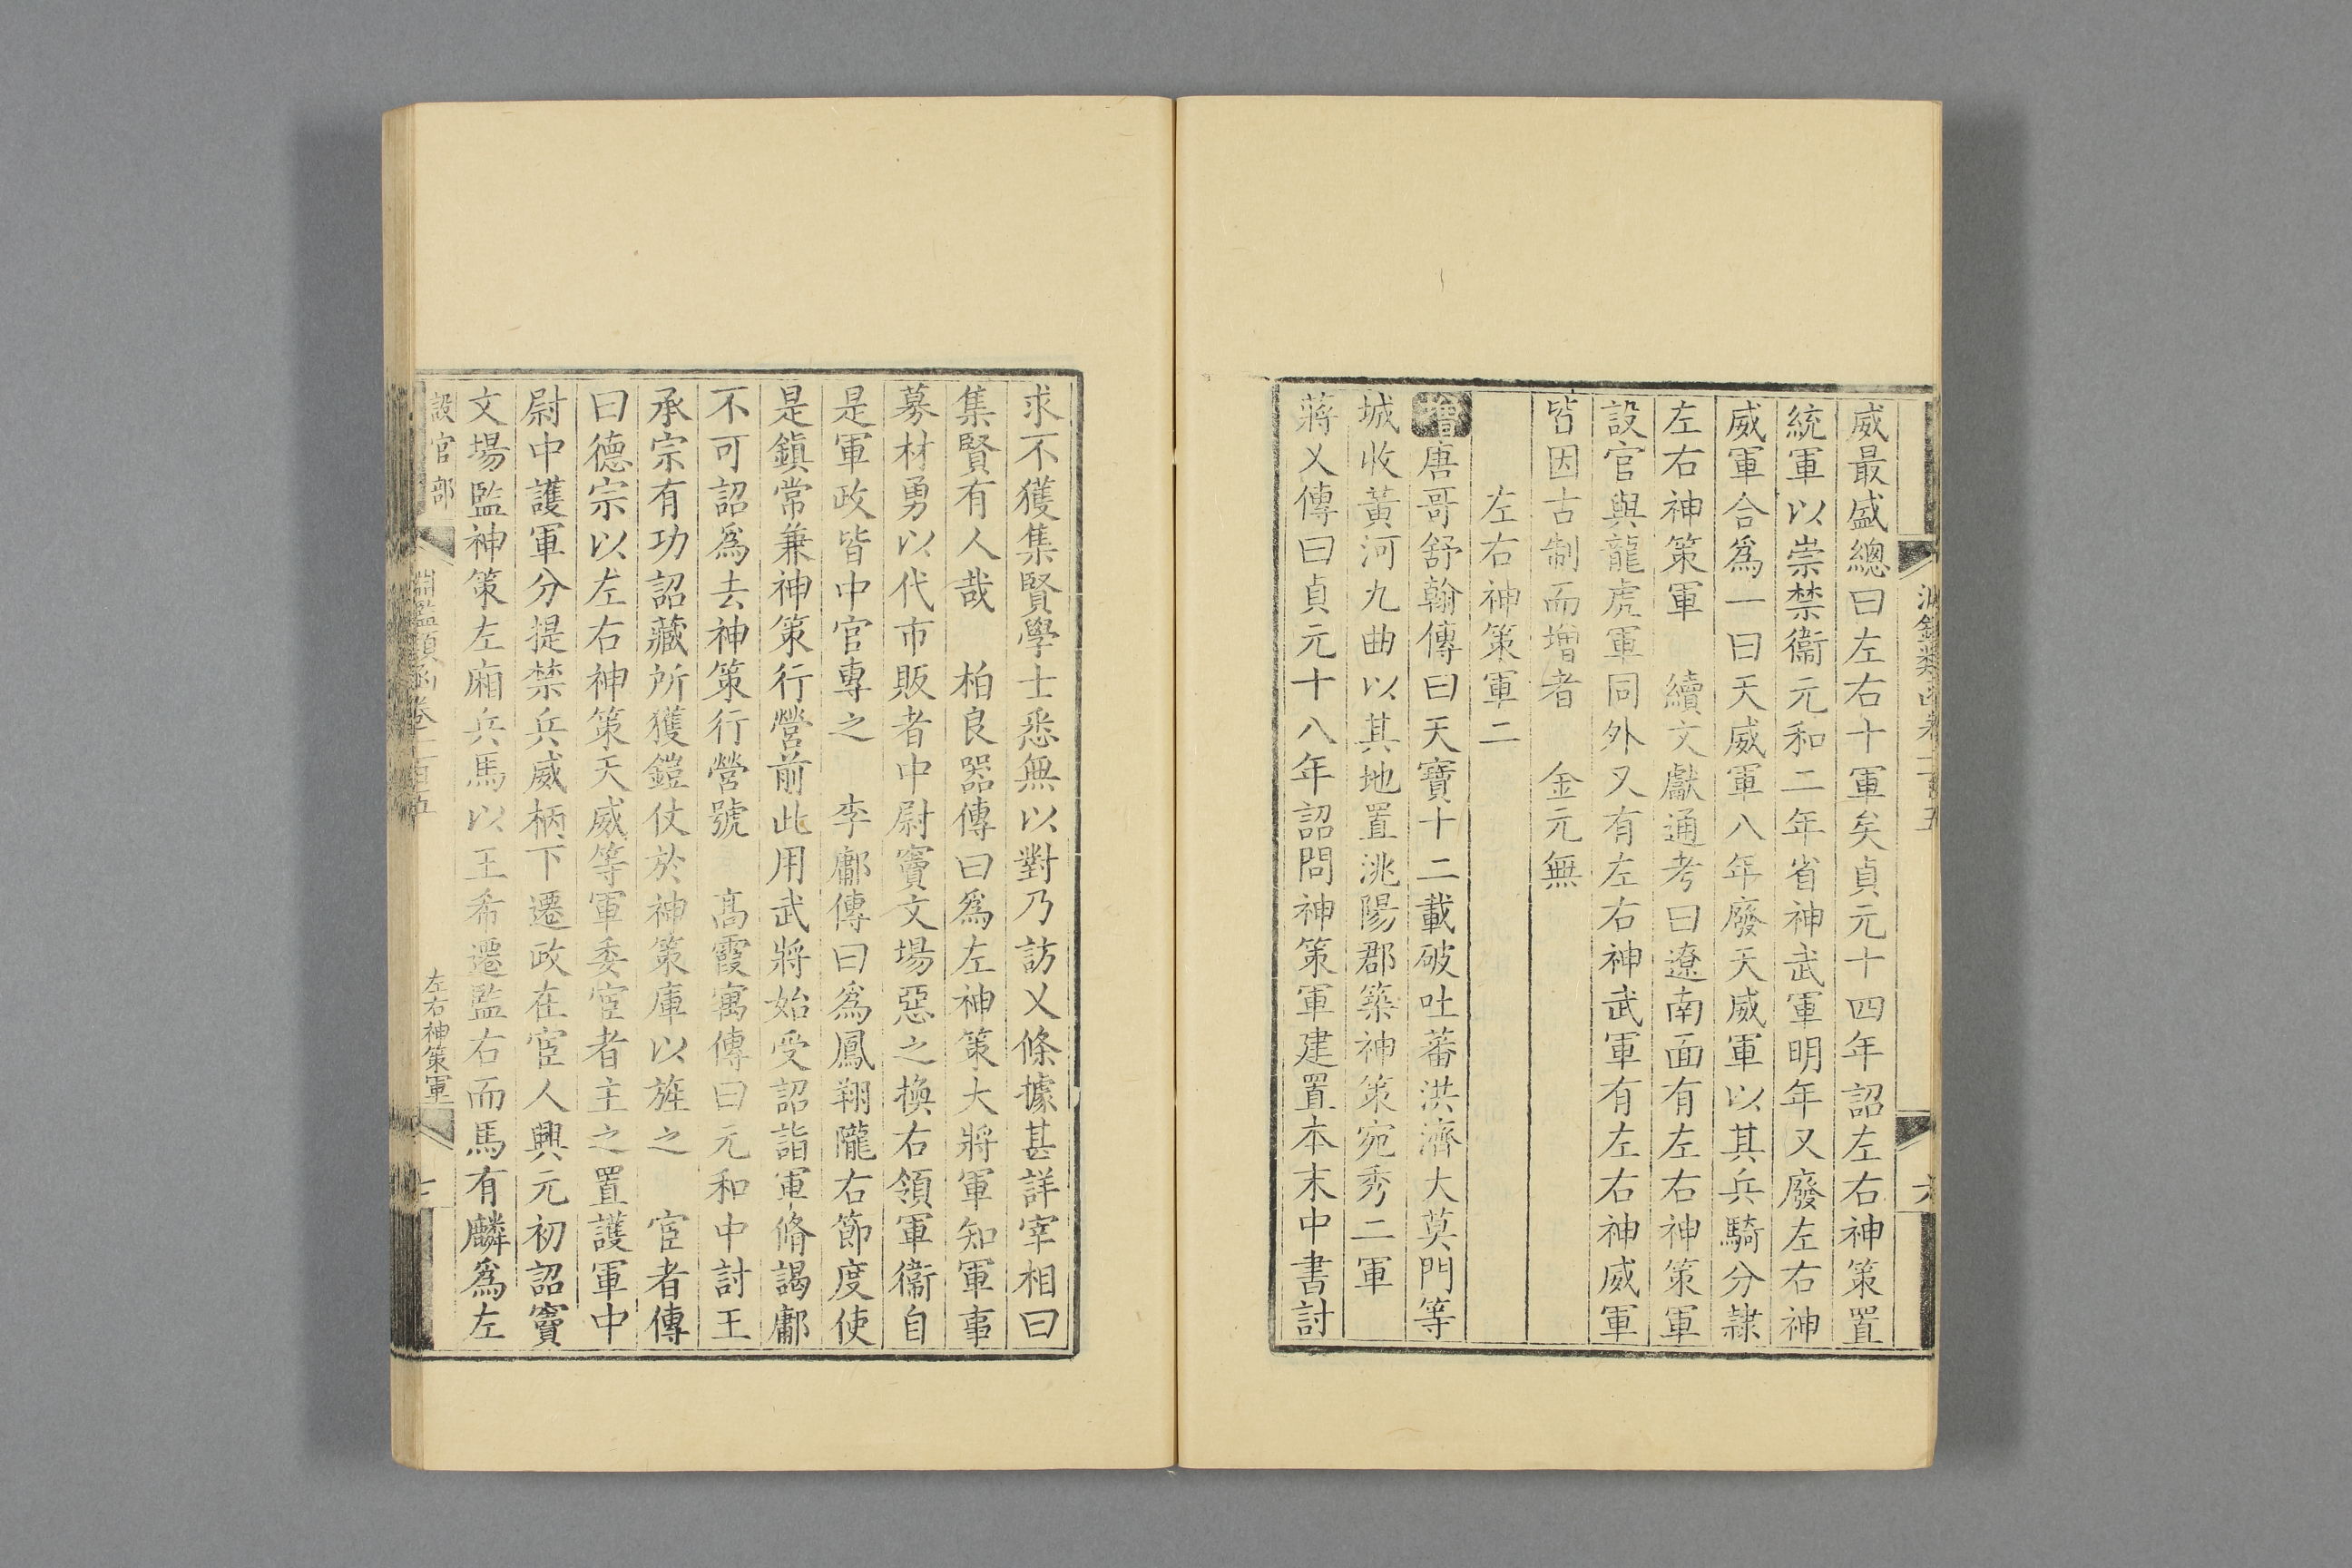 威最盛總曰左右十軍矣貞元十四年詔左右神策置
統軍以崇禁衞元和二年省神武軍明年又廢左右神
威軍合爲一曰天威軍八年廢天威軍以其兵騎分隸
左右神策軍　續文獻通考曰遼南面有左右神策軍
設官與龍虎軍同外又有左右神武軍有左右神威軍
皆因古制而增者　金元無
左右神策軍二
增唐哥舒翰傳曰天寶十二載破吐蕃洪濟大莫門等
城收黃河九曲以其地置洮陽郡築神策宛秀二軍
蔣乂傳曰貞元十八年詔問神策軍建置本末中書討
求不獲集賢學士悉無以對乃訪乂條據甚詳宰相曰
集賢有人哉　柏良器傳曰爲左神策大將軍知軍事
募材勇以代市販者中尉竇文場惡之換右領軍衞自
是軍政皆中官專之　李鄘傳曰爲鳳翔隴右節度使
是鎭常兼神策行營前此用武將始受詔詣軍脩謁鄘
不可詔爲去神策行營號　高霞寓傳曰元和中討王
承宗有功詔藏所獲鎧仗於神策庫以旌之　宦者傳
曰德宗以左右神策天威等軍委宦者主之置護軍中
尉中護軍分提禁兵威柄下遷政在宦人興元初詔竇
文場監神策左廂兵馬以王希遷監右而馬有麟爲左
設官部
淵鑑類函卷一百五
左右神策軍
七